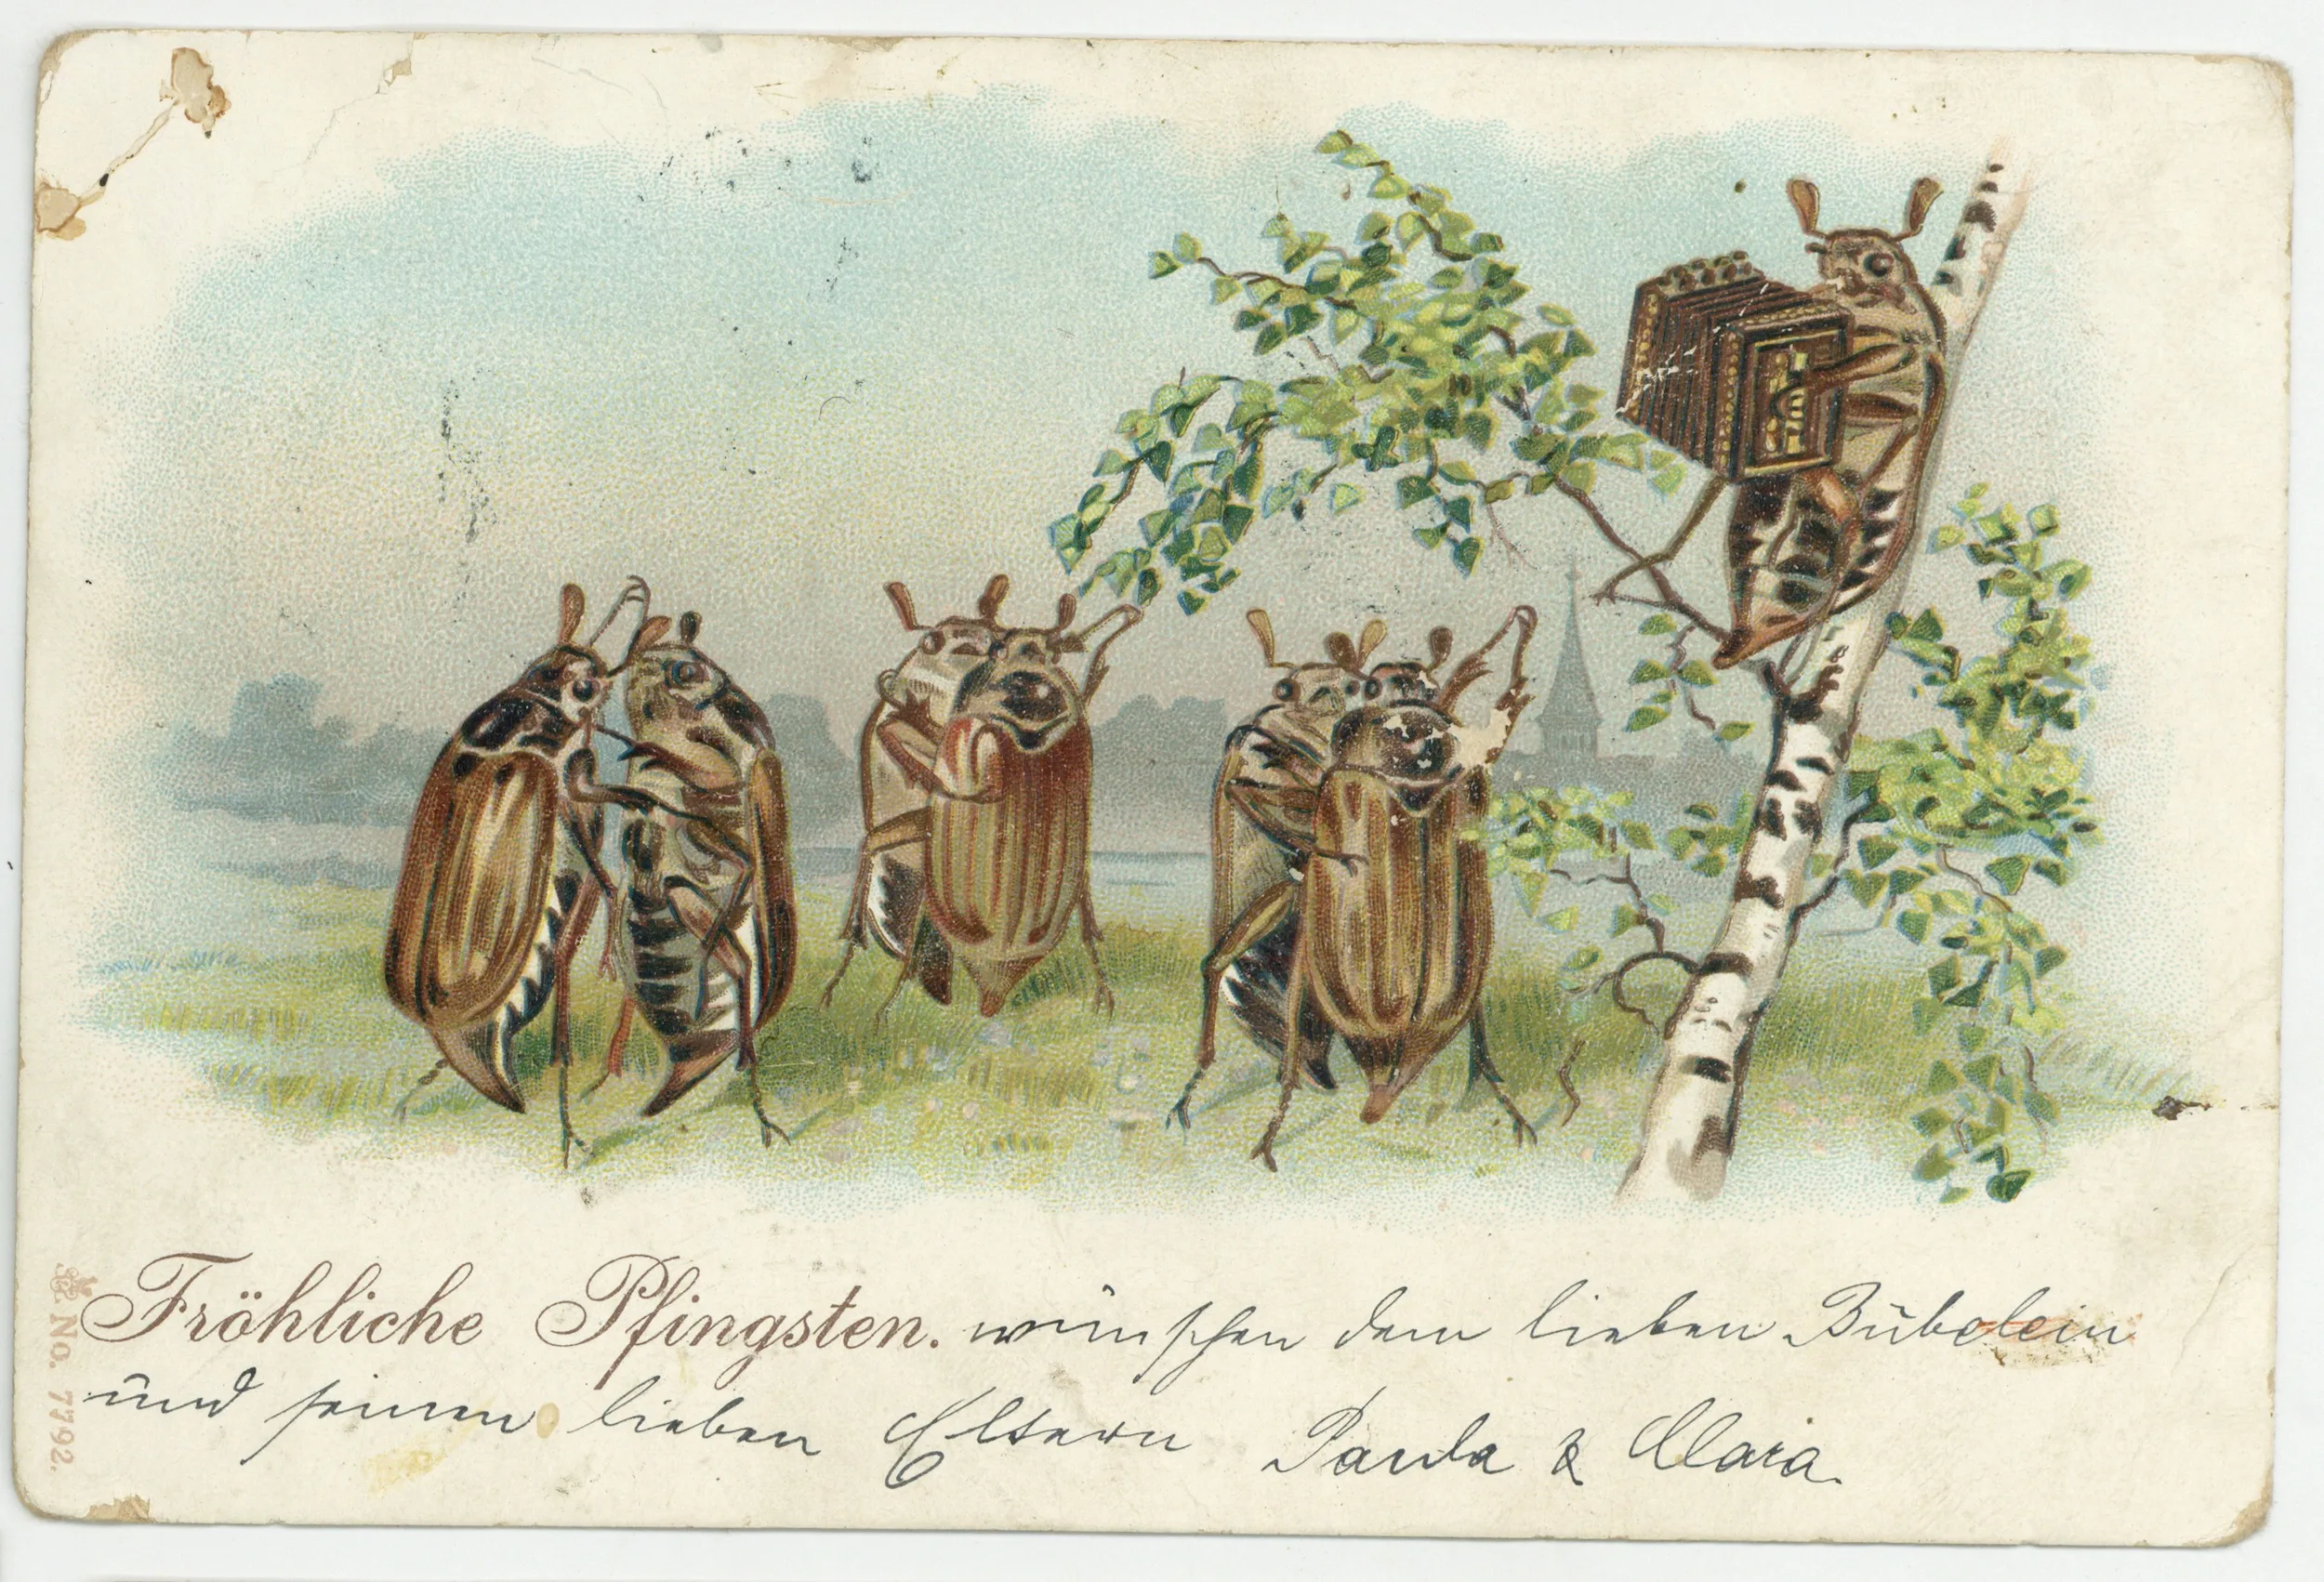 Fröhliche Pfingsten. wünschen dem lieben Bübelein
und seinen lieben Eltern Paula & Clara.
No. 7792.